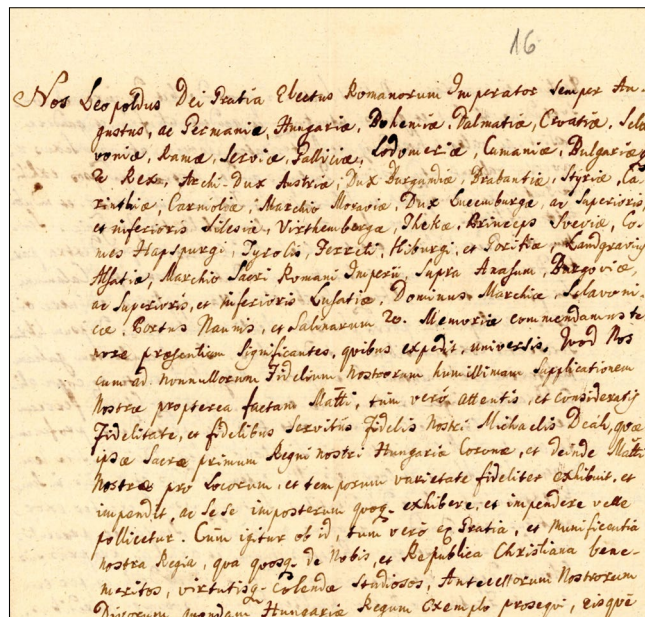 16
Nos Leopoldus Dei Gratia Electus Romanorum Imperator Semper Au-
gustus, ac Germaniæ, Hungariæ, Bohemiæ, Dalmatiæ, Croatiæ, Scla
voniæ, Ramæ, Serviæ, Galliciæ, Lodomeriæ, Cumaniæ, Bulgariæq
&c Rex, Archi-Dux Austriæ, Dux Burgundiæ, Brabantiæ, Styriæ, Ca
rinthiæ, Carnioliæ, Marchio Moraviæ Dux Lucemburgæ, ac Superioris,
et inferioris Silesiæ, Virthembergæ, Thekæ, Princeps Sveviæ, Co-
mes Hapspurgi, Tyrolis, Ferreti, Kiburgi, et Goritiæ, Landgravius
Alsatiæ, Marchio Sacri Romani Imperii, Supra Anasum, Burgoviæ,
ac Superioris, et inferioris Lusatiæ, Dominus Marchiæ, Sclavoni-
cæ, Portus Naunis, et Salinarum &c. Memoriæ commendamus te
nore præsentium significantes, quibus expedit, universis. Quod Nos
cum ad nonnullorum Fidelium Nostrorum humillimam Supplicationem
Nostræ propterea factam Matti, tum vero attentis, et consideratis
Fidelitate, et fidelibus Servitiis Fidelis Nostri Michaelis Deák, quæ
ipse Sacræ primum Regni nostri Hungariæ Coronæ, et deinde Matti
Nostræ pro Locorum, et temporum varietate fideliter exhibuit, et
impendit, ac se se imposterum quoq exhibere, et impendere velle
pollicetur. Cum igitur ob id, tum vero ex Gratia, et Munificentia
nostra Regia, qua quosq de Nobis, et Republica Christiana bene-
meritos, virtutisq Colendæ Studiosos, Antecessorum Nostrorum
Divorum quondam Hungariæ Regum Exemplo prosequi, eisque